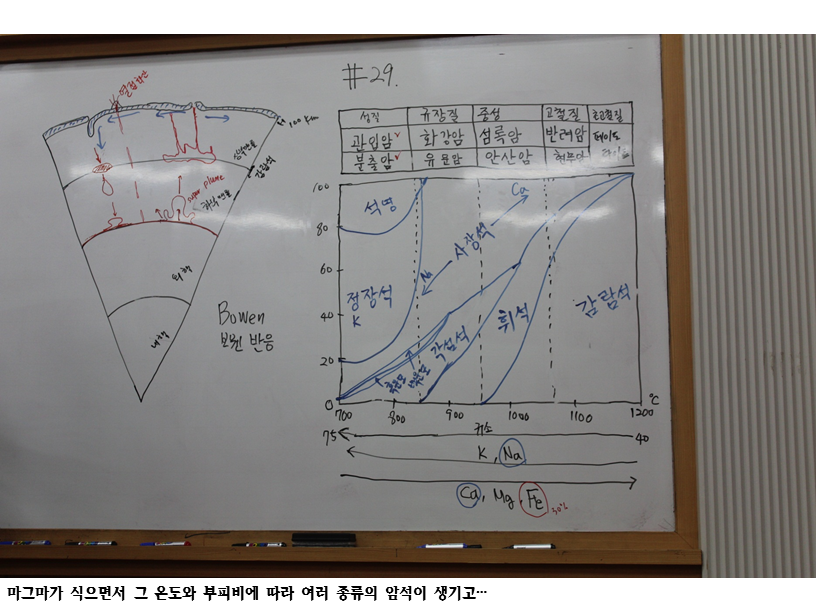 #29.
열점화산
100 km
상부맨틀
감람석
super plume
하부맨틀
외핵
내핵
Bowen
보웬 반응
성질 규장질 중성 고철질 초고철질
관입암 화강암 섬록암 반려암
분출암 유문암 안산암 현무암
100
80
60
40
20
0
석영
정장석
K
Ca
사장석
Na
각섬석
휘석
감람석
흑운모
700 800 900 1000 1100 1200 ℃
75 규소 40
K, Na
Ca, Mg, Fe
30%
마그마가 식으면서 그 온도와 부피비에 따라 여러 종류의 암석이 생기고…